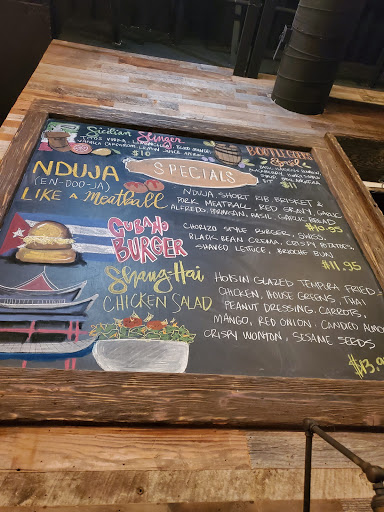 Sicilian Slinger
$10
BOOTLEGGERS
$11
SPECIALS
NDUJA
(EN-DOO-JA)
LIKE A Meatball
NDUJA, SHORT RIB, BRISKET &
PORK MEATBALL, RED GRAVY, GARLIC
ALFREDO, PARMESAN, BASIL, GARLIC BREAD
$10.95
CUBANO
BURGER
CHORIZO STYLE BURGER, SWISS,
BLACK BEAN CREMA, CRISPY POTATOES,
SHAVED LETTUCE, BRIOCHE BUN
$11.95
Shang-Hai
CHICKEN SALAD
HOISIN GLAZED TEMPURA FRIED
CHICKEN, HOUSE GREENS, THAI
PEANUT DRESSING, CARROTS,
MANGO, RED ONION, CANDIED ALMOND
CRISPY WONTON, SESAME SEEDS
$13.9